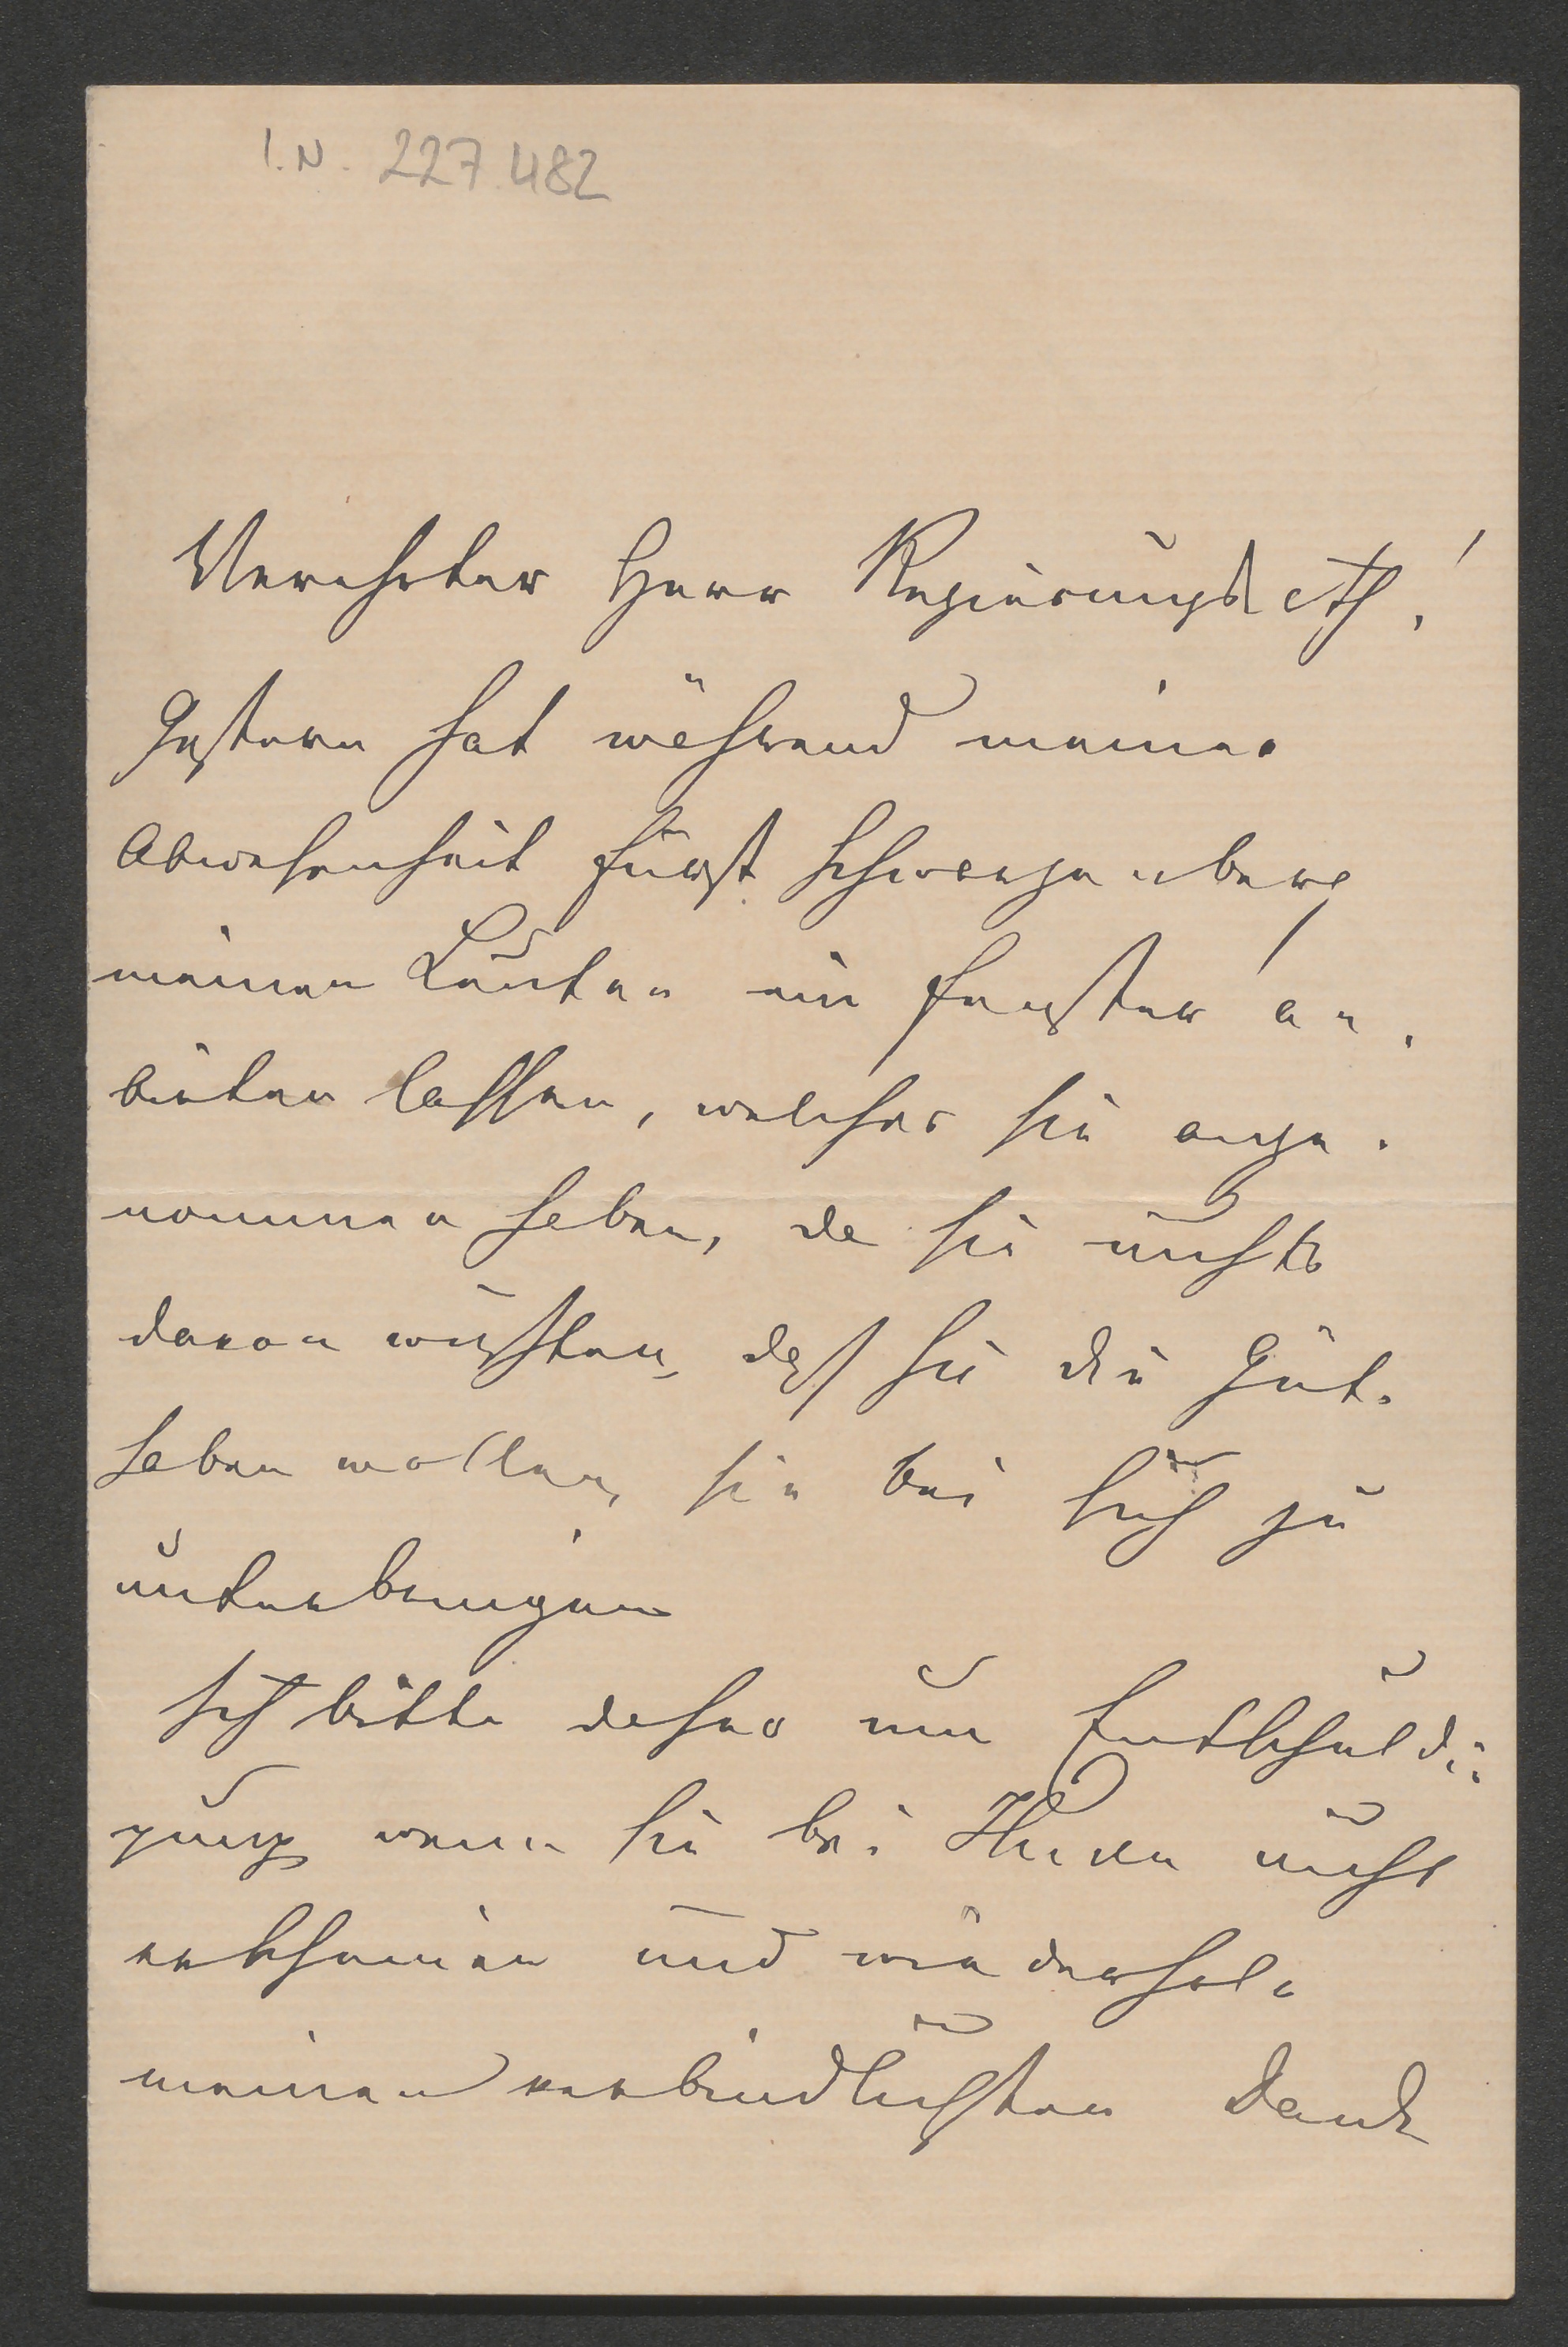 I.N. 227.482
Verehrter Herr Regierungsrath!
Gestern hat während meiner
Abwesenheit Fürst Schwarzenberg
meinen Leuten ein Fenster an-
bieten lassen, welches sie ange-
nommen haben, da sie nichts
davon wußten, daß Sie die Güte
haben wollen, sie bei sich zu
unterbringen
Ich bitte daher um Entschuldi-
gung wenn sie bei Ihnen nicht
erscheinen und wiederhole
meinen verbindlichsten Dank